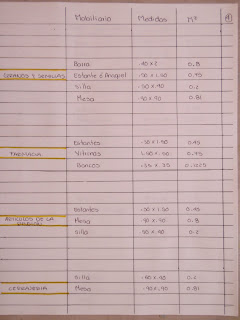 Mobiliario Medidas M²
Barra .40 x 2 0.8
GRANOS Y SEMILLAS Estante ó Anaquel .30 x 1.50 0.45
Silla .50 x 40 0.2
Mesa .90 x 90 0.81
Estantes .30 x 1.50 0.45
FARMACIA Vitrinas 1.50 x .50 0.75
Bancos .35 x .35 0.1225
Estantes .30 x 1.50 0.45
ARTICULOS DE LA Mesa
Silla .50 x .40 0.2
Silla 0.2
CERRAJERIA Mesa .90 x .90 0.81